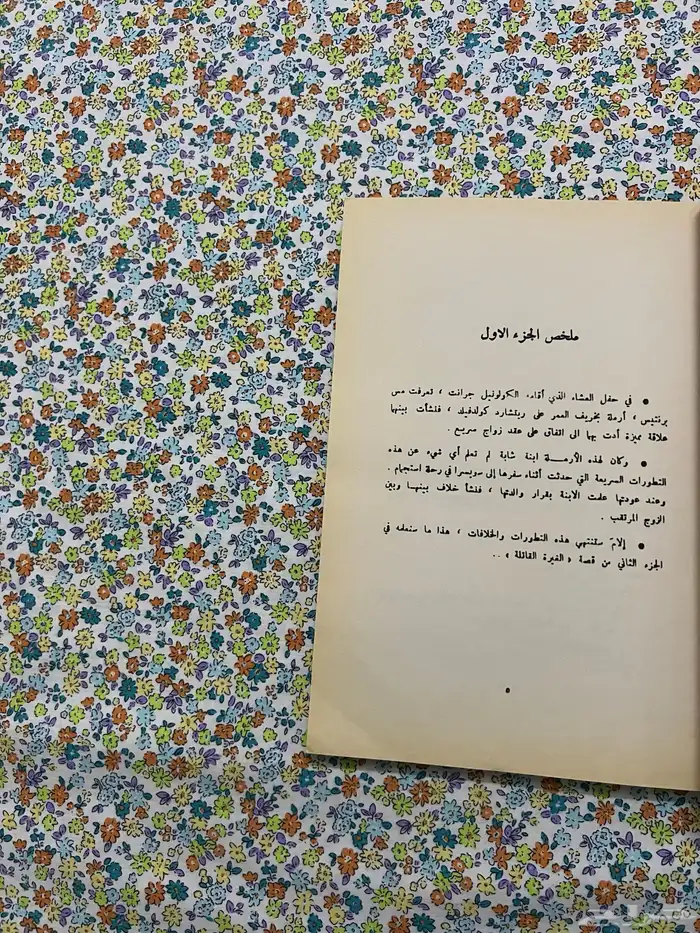 ملخص الجزء الاول
● في حفل العشاء الذي أقامه الكولونيل جرانت ، تعرفت مس
برنتيس ، أرملة بخريف العمر على ريتشارد كولدفيلد ، فنشأت بينهما
علاقة مميزة أدت بها الى اتفاق على عقد زواج سريع .
● وكان لهذه الأرمـلـة ابنة شابة لم تعلم أي شيء عن هذه
التطورات السريعة التي حدثت أثناء سفرها إلى سويسرا في رحلة استجمام .
وعند عودتها علمت الابنة بقرار والدتها ، فنشأ خلاف بينهـا وبين
الزوج المرتقب .
● إلامَ ستنتهي هذه التطورات والخلافات ، هذا ما سنعلمه في
الجزء الثاني من قصة « الغيرة القاتلة » ..
٥